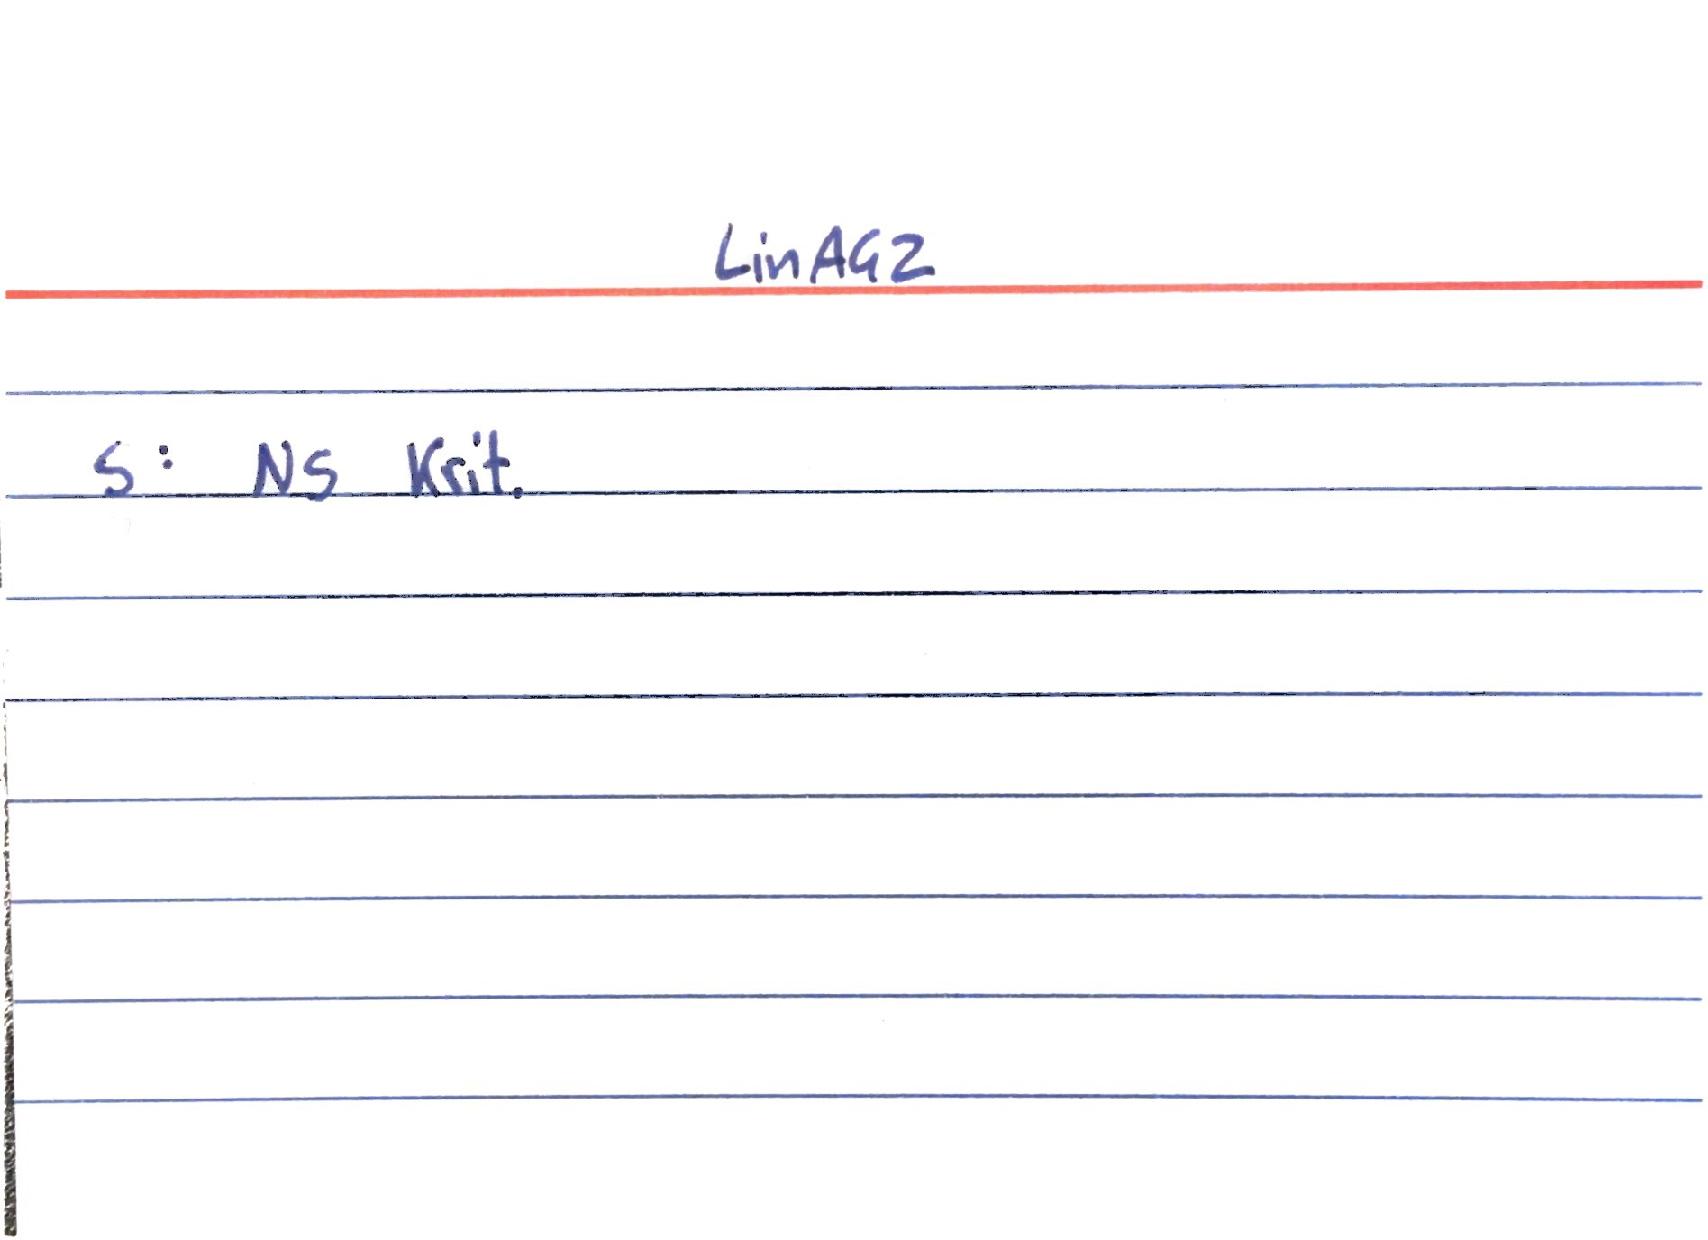 LinAG2
S: NS Krit.